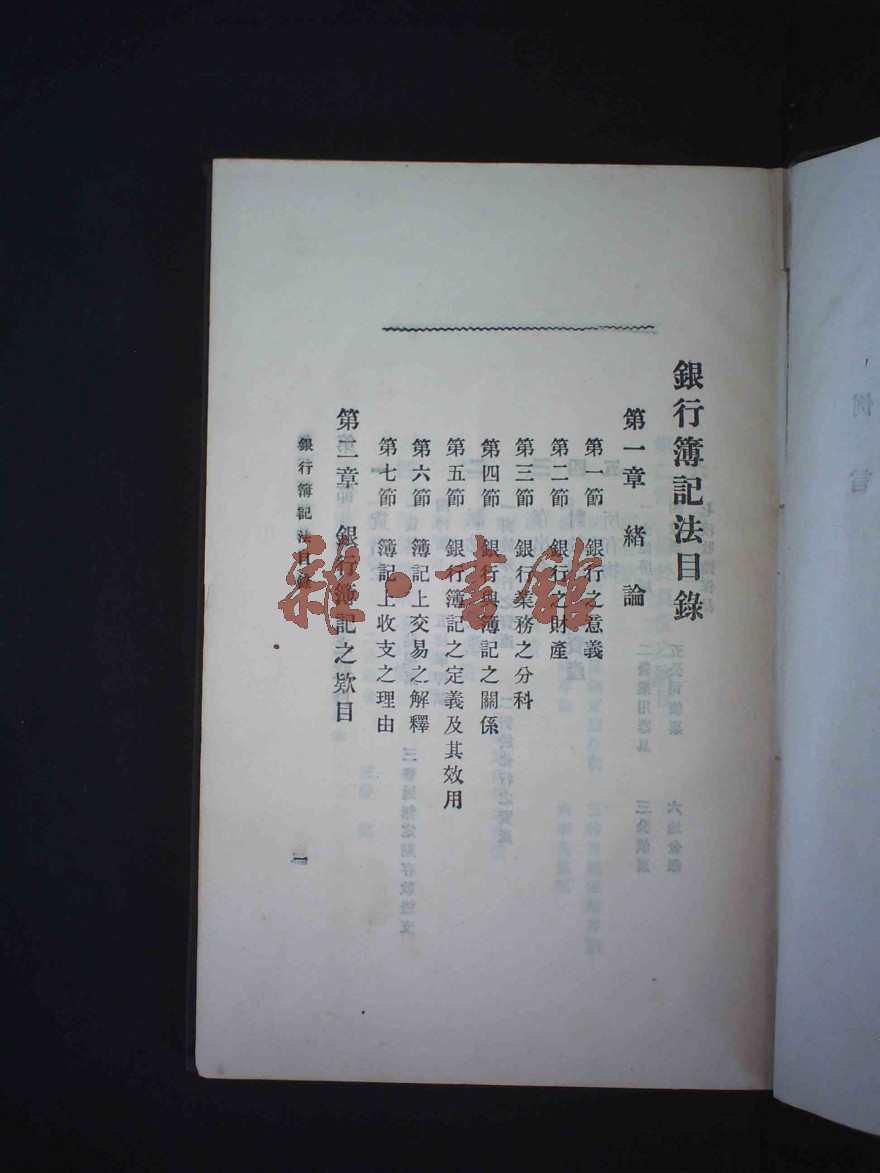 銀行簿記法目錄
第一章 緒論
第一節 銀行之意義
第二節 銀行之財產
第三節 銀行業務之分科
第四節 銀行與簿記之關係
第五節 銀行簿記之定義及其效用
第六節 簿記上交易之解釋
第七節 簿記上收支之理由
第二章 銀行簿記之欵目
銀行簿記法目錄
雜·書館
例言